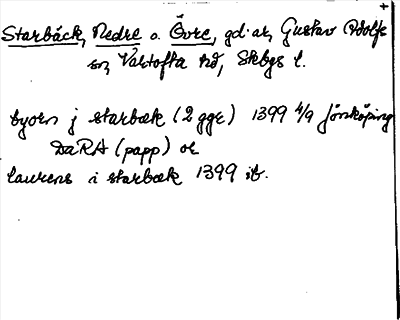 +
Starbäck, Nedre o. Övre, gd·ar, Gustav Adolfs
sn, Vartofta hd, Skbgs l.
byorn j starbæk (2 ggr) 1399 4/9 Jönköping
DaRA (papp) or
laurens i starbæk 1399 ib.